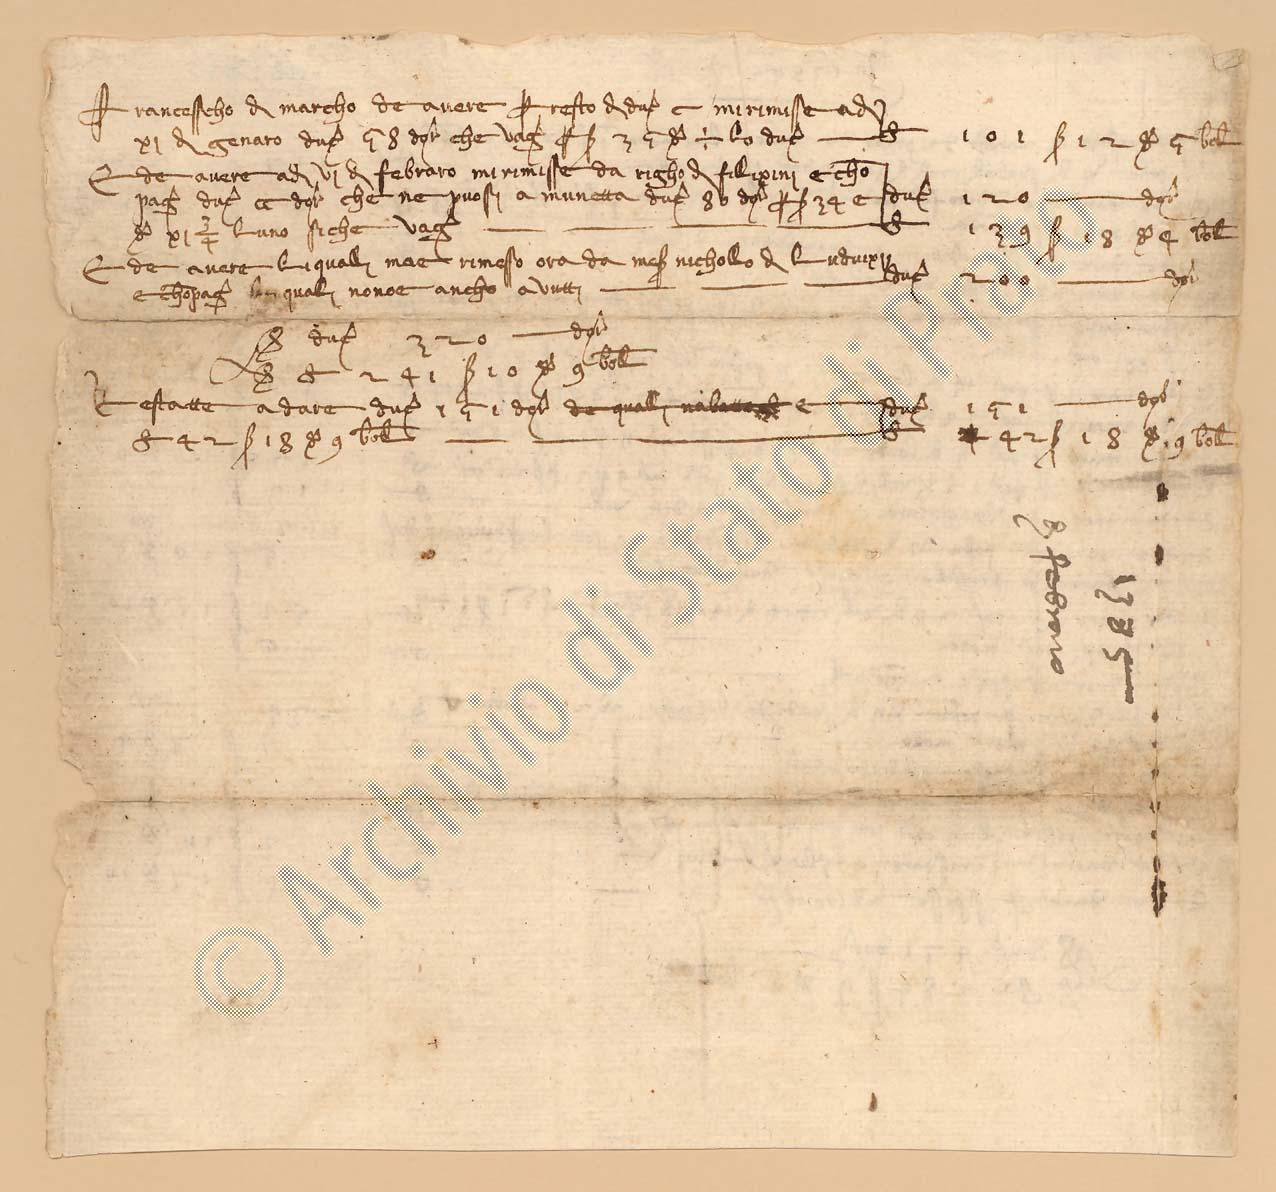 Francesscho di marcho de avere per resto di duc C mi rimisse a dì
XI di genaro duc 58 dor che vag per s 35 d ½ lo duc — £ 101 s 12 d 5 boll
E de avere a dì VI di febraro mi rimisse da righo di filipini e chō
pag duc CC dor che ne puosi a munetta duc 80 dor per s 34 e duc 120 — dor
d XI ¾ luno siche vag — £ 139 s 18 d 4 boll
E de avere li quali mae rimesso ora da mes nichollo di Luduixi
e chōpag quali nonoe ancho avutti — duc 200 — dor
S duc 320 — dor
S £ 241 s 10 d 9 boll
Restatte a dare duc 151 dor de quali e — duc 151 — dor
£ 42 s 18 d 9 boll — £ 42 s 18 d 9 boll
1385
di febraro
© Archivio di Stato di Prato